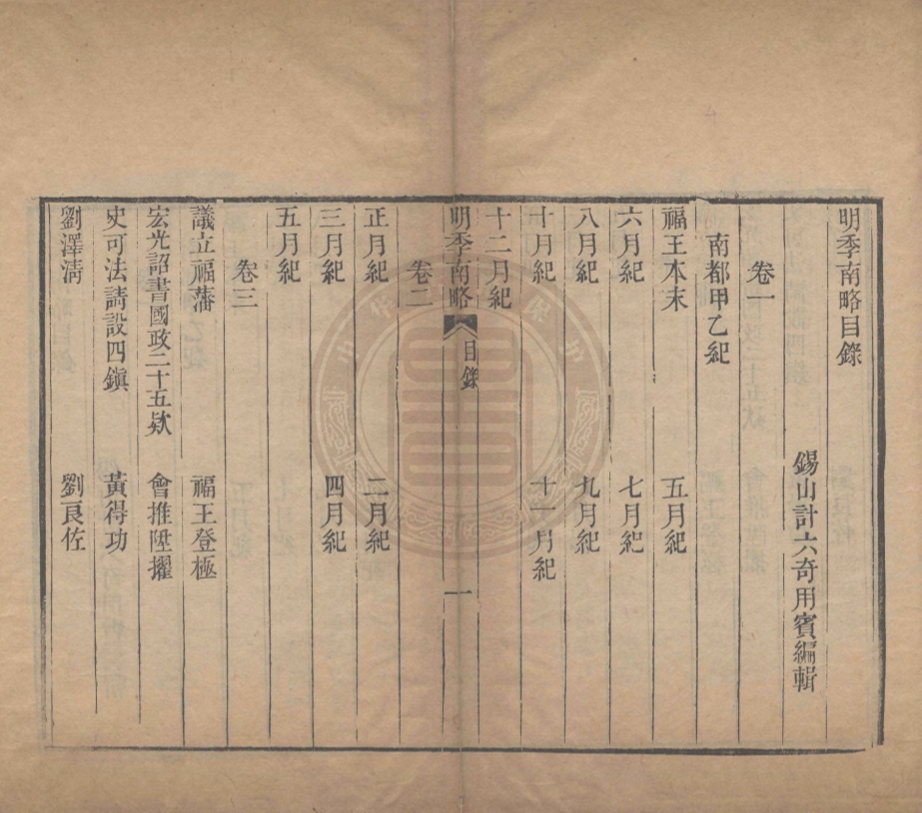 明季南略目錄
錫山計六奇用賓編輯
卷一
南都甲乙紀
福王本末　五月紀
六月紀　七月紀
八月紀　九月紀
十月紀　十一月紀
十二月紀
明季南略　目錄　一
卷二
正月紀　二月紀
三月紀　四月紀
五月紀
卷三
議立福藩　福王登極
宏光詔書國政二十五欵　會推陞擢
史可法請設四鎭　黃得功
劉澤淸　劉良佐